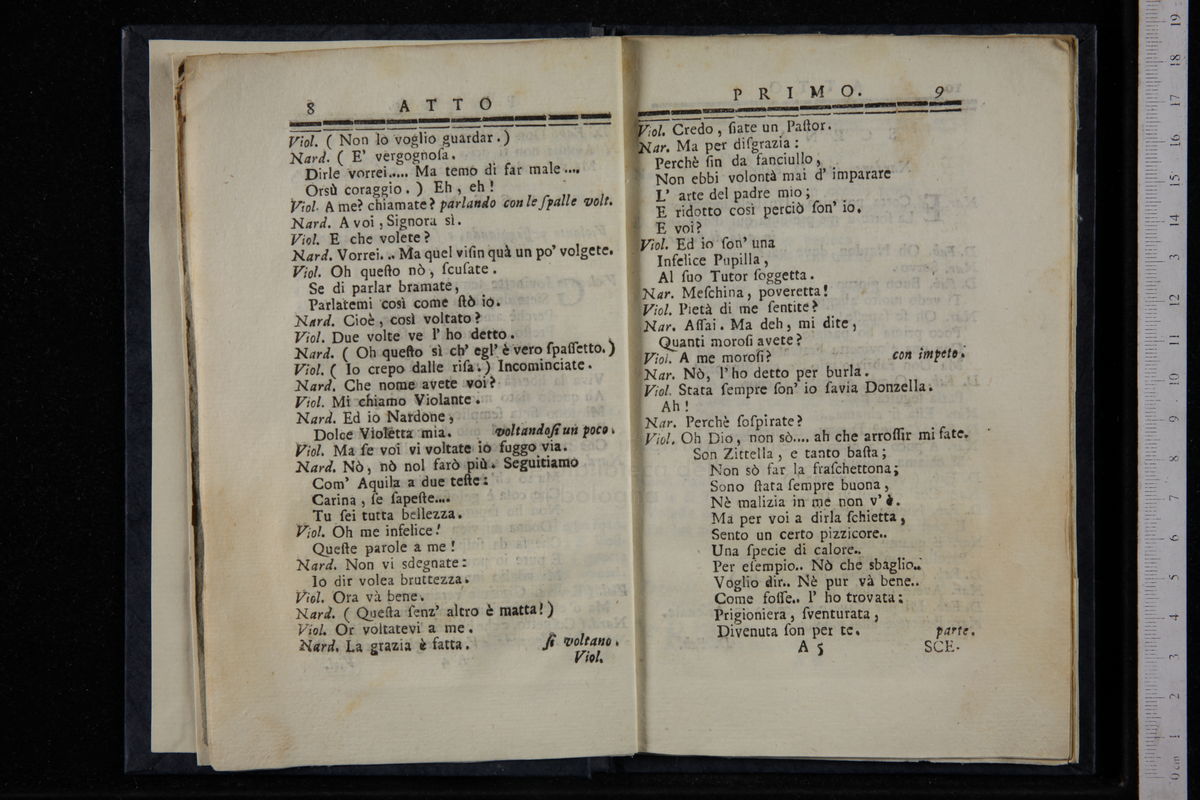 8 ATTO
Viol. ( Non lo voglio guardar. )
Nard. ( E' vergognoſa.
Dirle vorrei..... Ma temo di far male....
Orsù coraggio. ) Eh, eh!
Viol. A me? chiamate? parlando con le ſpalle volt.
Nard. A voi, Signora sì.
Viol. E che volete?
Nard. Vorrei... Ma quel viſin quà un po' volgete.
Viol. Oh queſto nò, ſcuſate.
Se di parlar bramate,
Parlatemi così come ſtò io.
Nard. Cioè, così voltato?
Viol. Due volte ve l' ho detto.
Nard. ( Oh queſto sì ch' egl' è vero ſpaſſetto. )
Viol. ( Io crepo dalle riſa. ) Incominciate.
Nard. Che nome avete voi?
Viol. Mi chiamo Violante.
Nard. Ed io Nardone,
Dolce Violetta mia. voltandoſi un poco.
Viol. Ma ſe voi vi voltate io fuggo via.
Nard. Nò, nò nol farò più. Seguitiamo
Com' Aquila a due teſte:
Carina, ſe ſapeſte....
Tu ſei tutta bellezza.
Viol. Oh me infelice!
Queſte parole a me!
Nard. Non vi sdegnate:
Io dir volea bruttezza.
Viol. Ora và bene.
Nard. ( Queſta ſenz' altro è matta! )
Viol. Or voltatevi a me.
Nard. La grazia è fatta. ſi voltano.
Viol.
PRIMO. 9
Viol. Credo, ſiate un Paſtor.
Nar. Ma per diſgrazia:
Perchè ſin da fanciullo,
Non ebbi volontà mai d' imparare
L' arte del padre mio;
E ridotto così perciò ſon' io.
E voi?
Viol. Ed io ſon' una
Infelice Pupilla,
Al ſuo Tutor ſoggetta.
Nar. Meſchina, poveretta!
Viol. Pietà di me ſentite?
Nar. Aſſai. Ma deh, mi dite,
Quanti moroſi avete?
Viol. A me moroſi? con impeto.
Nar. Nò, l' ho detto per burla.
Viol. Stata ſempre ſon' io ſavia Donzella.
Ah!
Nar. Perchè ſoſpirate?
Viol. Oh Dio, non sò.... ah che arroſſir mi fate.
Son Zittella, e tanto baſta;
Non sò far la fraſchettona;
Sono ſtata ſempre buona,
Nè malizia in me non v' è.
Ma per voi a dirla ſchietta,
Sento un certo pizzicore..
Una ſpecie di calore..
Per eſempio.. Nò che sbaglio..
Voglio dir.. Nè pur và bene..
Come foſſe.. l' ho trovata:
Prigioniera, ſventurata,
Divenuta ſon per te. parte.
A 5 SCE-